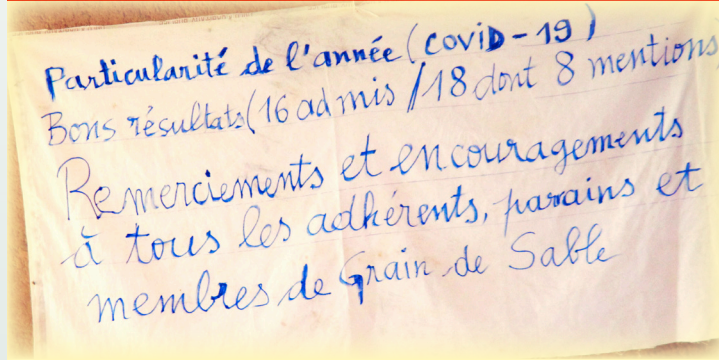 Particularité de l'année (COVID-19)
Bons résultats (16 admis / 18 dont 8 mentions
Remerciements et encouragements
à tous les adhérents, parains et
membres de Grain de Sable